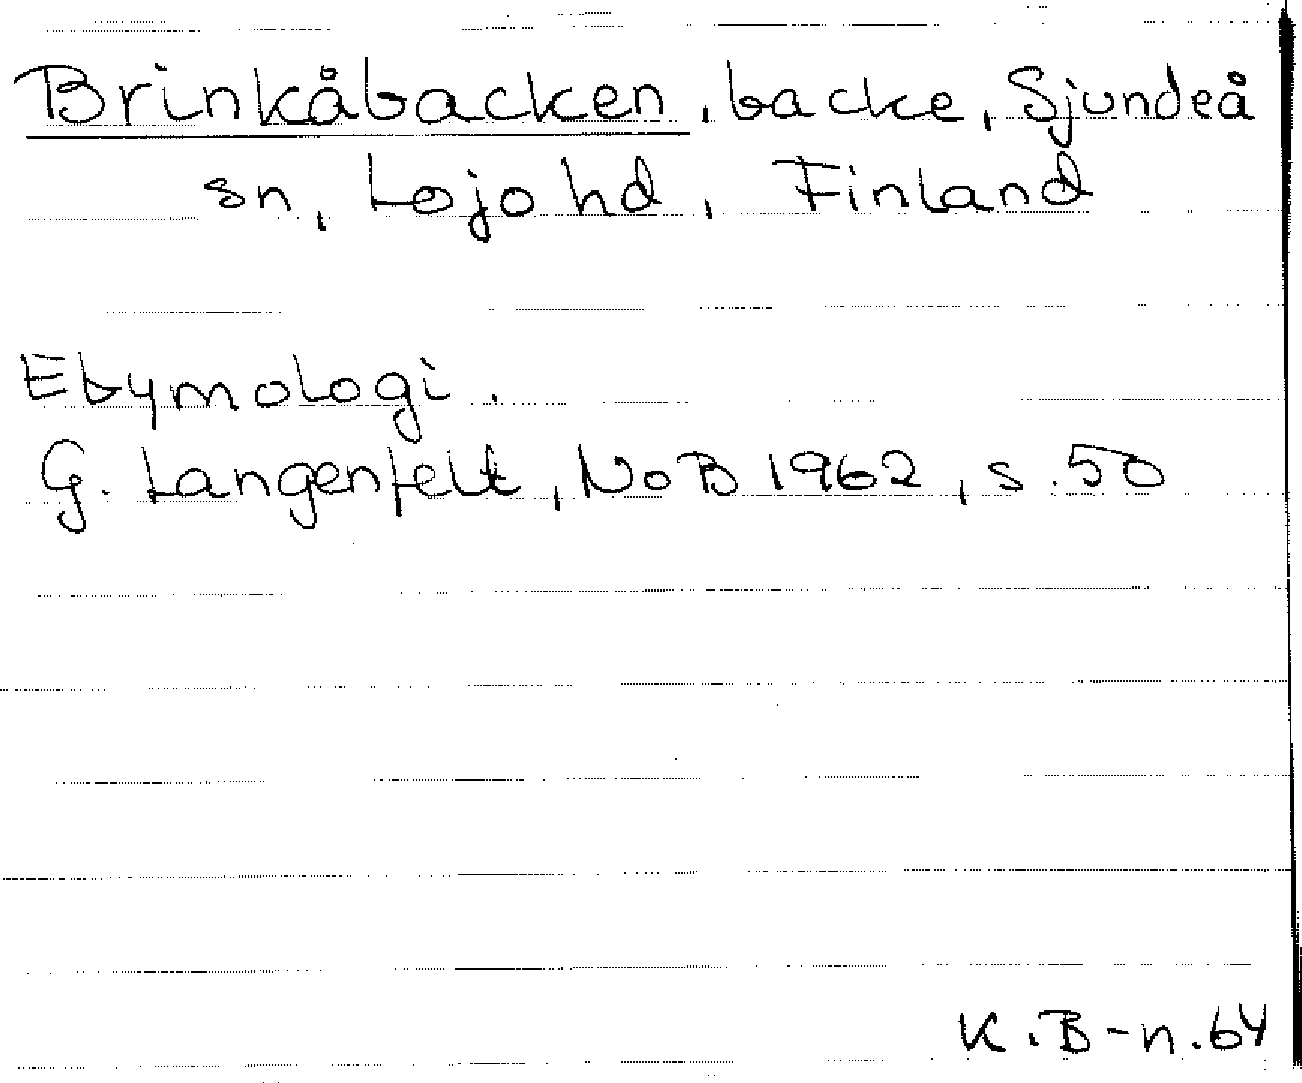 Brinkåbacken, backe, Sjundeå
sn, Lojo hd, Finland
Etymologi.
G. Langenfelt, NoB 1962, s. 50
K.B-n. 64